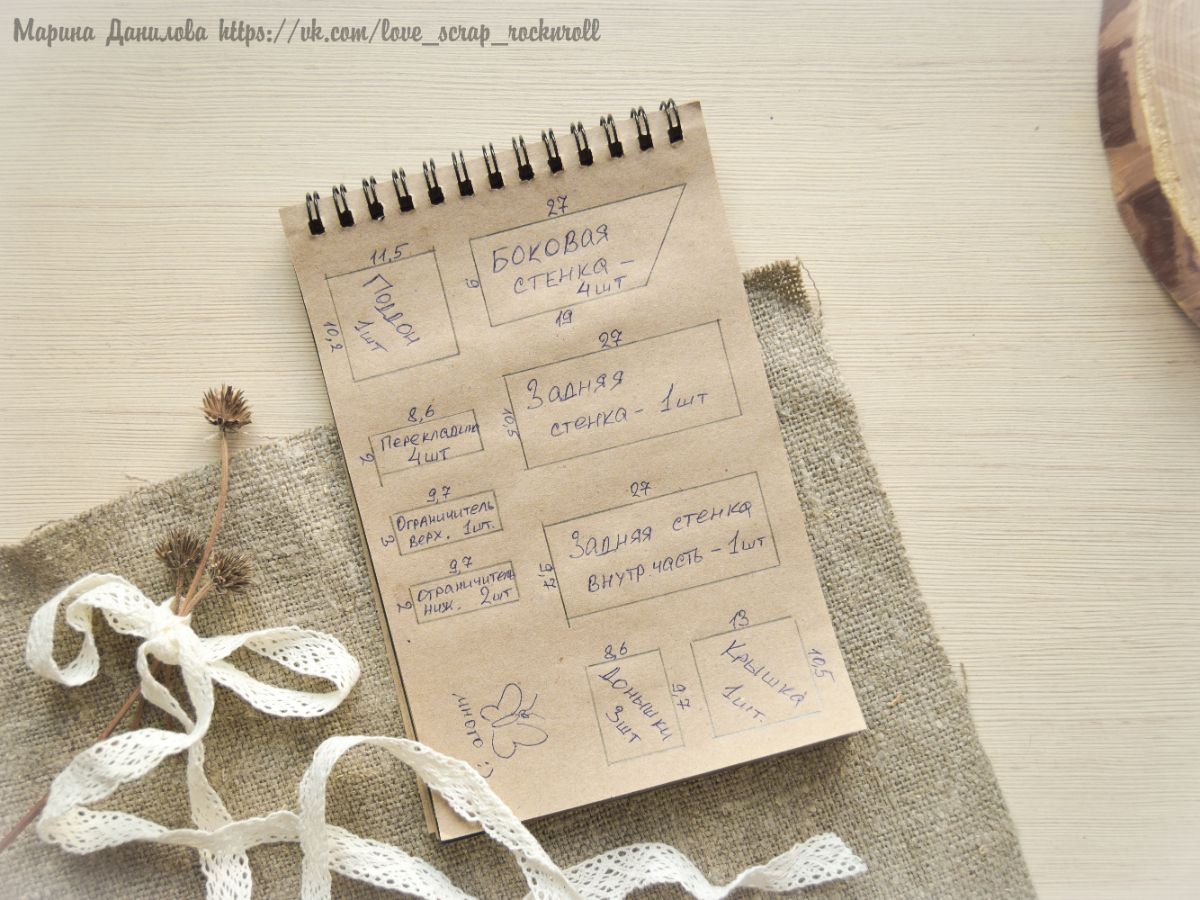 Марина Данилова https://vk.com/love_scrap_rocknroll
27
9
БОКОВАЯ
СТЕНКА –
4ШТ
19
11,5
10,2
Поддон
1шт
27
10,5
Задняя
стенка – 1шт
8,6
2
Перекладины
4шт
9,7
3
Ограничитель
верх. 1шт.
27
9,7
Задняя стенка
внутр.часть – 1шт
9,7
2
Ограничитель
ниж. 2шт
8,6
9,7
Донышки
3шт
13
10,5
Крышка
1шт.
много :)